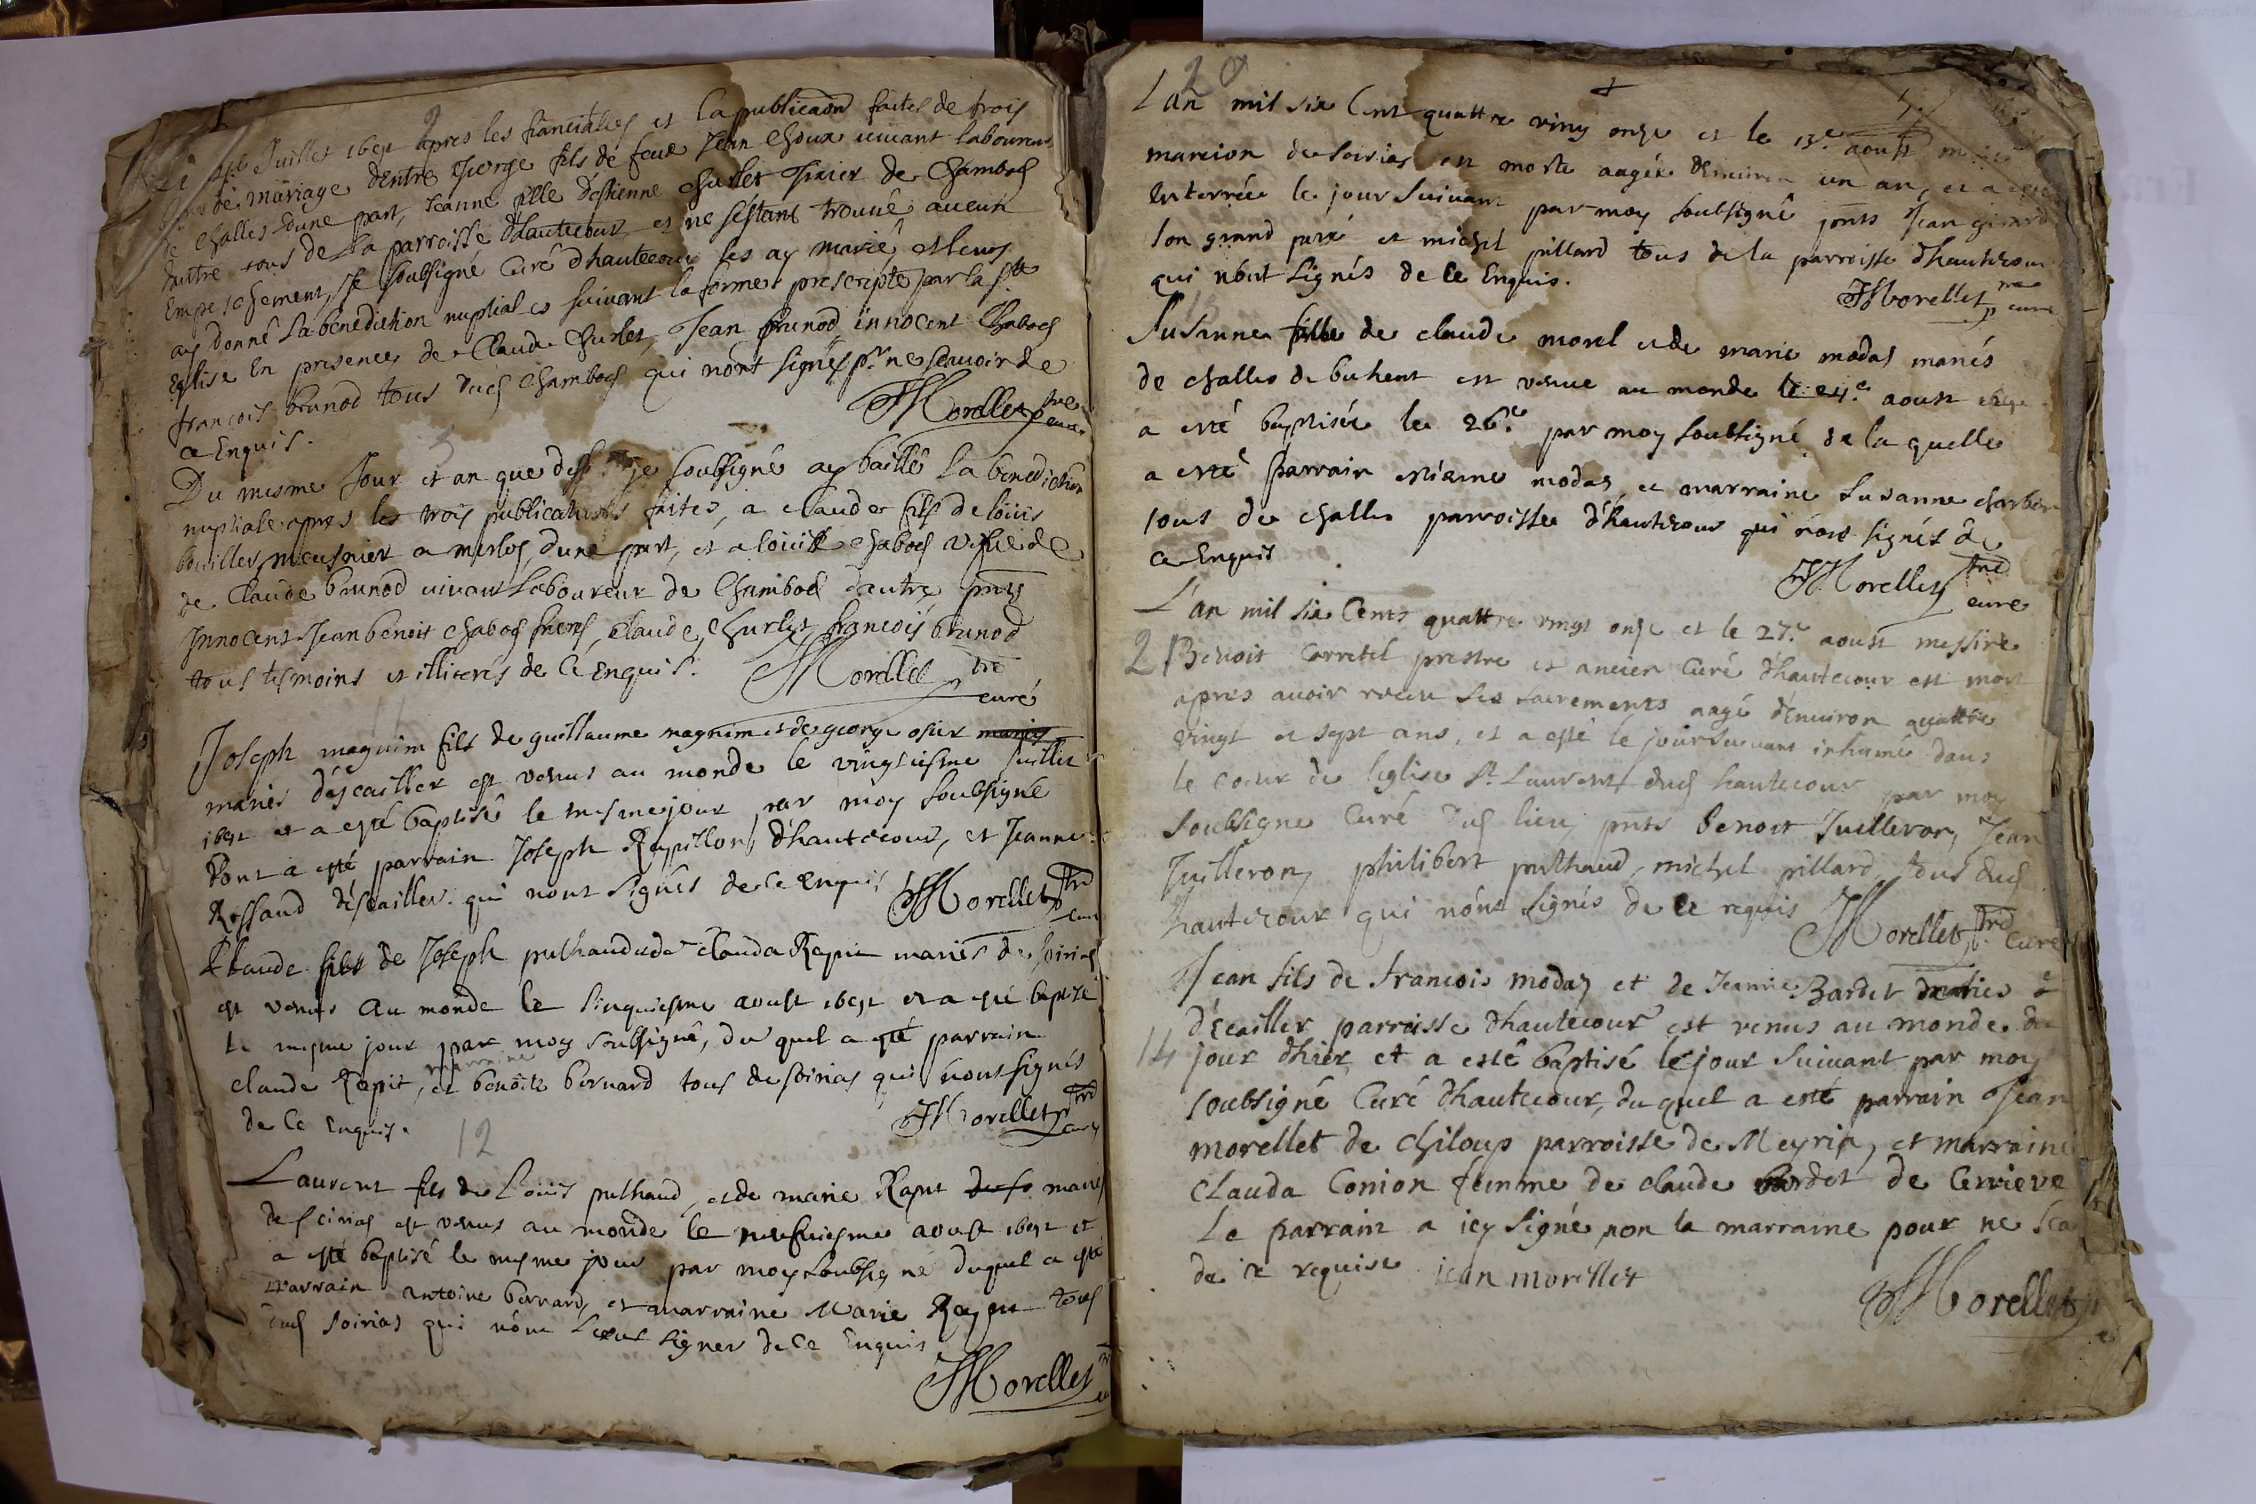 2
Juillet 1691 apres les fiancialles et la publicaõn faites de trois
de mariage d'entre George fils de feue Jean Choux vivant laboureur
de Challes d'une part, Jeanne fille d'Estienne Churlet de Chambod
d'autre tous de la parroisse d'hautecour et ne s'estant trouvé aucun
Empeschement, Je soubsigné Curé d'hautecour les ay mariê et leurs
ay donnê la benediction nuptiale suivant la forme prescripte par la Ste
Eglise En presences de Claude Churlet, Jean brunod innocent Chabod
françois brunod tous dud Chambod qui nont signés pr ne scavoir de
ce Enquis.
JMorellet ptre curé
3
Du mesme Jour et an que dess. Je soubsigné ay baillé la benediction
nuptiale apres les trois publications faites, a claude fils de loüis
meusnier a merlos, d'une part, et a loüise Chabod vefve de
de Claude brunod vivant Laboureur de Chambod d'autre pnts
Innocent Jean benoit chabod freres, Claude Churlet, françois brunod
tous tesmoins et illiterés de Ce Enquis.
JMorellet ptre curé
11
Joseph magnim fils de guillaume magnim et de george osier maries
mariés d'escailler est venus au monde le vingtiesme Juillet
1691 et a esté baptisê le mesme jour par moy soubsigné
Dont a esté parrain Joseph Rapillon d'hautecour, et Jeanne
Rossand d'escailler qui nont Signés de Ce enquis
JMorellet ptre curé
Claude fils de Joseph pulhaud et de clauda Rapin mariés de soirias
est venus au monde le sinquiesme aoust 1691 et a esté baptizé
le mesme jour par moy soubsigné, du quel a esté parrain
marraine
claude Rapit, et benoite bernard tous de soirias qui nont signés
de Ce Enquis.
JMorellet ptre curé
12
Laurent fils de Loüis pulhaud, et de marie Raput mariés
de soirias est venus au monde le neufviesme aoust 1691 et
a esté baptisé le mesme jour par moy soubsigné duquel a esté
parrain antoine bernard, et marraine Marie Raput tous
dud soirias qui nont sceut signer de Ce Enquis
JMorellet
20
L'an mil six Cent quattre vingt onze et le 13.e aoust
marion de soirias est morte aagée d'environ un an, et a esté
Enterrée le jour suivant par moy soubsigné pnts Jean girard
son grand pere et michel pillard tous de la parroisse d'hautecour
qui nont signés de Ce Enquis.
JMorellet ptre curé
13
Susanne fille de claude morel et de marie modas mariés
de challes de buhent est venue au monde le 24.e aoust
a esté baptisée le 26.e par moy soubsigné, de la quelle
a esté parrain estienne modas, et marraine susanne
tous de challes parroisse d'hautecour qui nont signés de
Ce Enquis
JMorellet ptre curé
L'an mil six Cents quattre vingt onze et le 27.e aoust messire
21
Benoit Corretel prestre et ancien Curé d'hautecour est mort
apres avoir receu ses sacrements aagé d'environ quattre
vingt et sept ans, et a esté le jour suivant inhumé dans
le coeur de l'eglise St. Laurent dud hautecour par moy
soubsigne Curé dud lieu, pnts Benoit Juilleron, Jean
Juilleron, philibert pulhaud, michel pillard, tous dud
hautecour qui nont signés de Ce requis
JMorellet ptre Curé
Jean fils de francois modas et de Jeanne Bardet maries
d'Ecailler parroisse d'hautecour est venus au monde du
14
jour d'hier et a estê baptisé le jour suivant par moy
soubsigné Curé d'hautecour, duquel a esté parrain Jean
morellet de Chiloup parroisse de Meyria, et marraine
clauda Conion femme de claude bardet de Cerieve
Le parrain a icy signé, non la marraine pour ne sca
de ce requise jean morellet
JMorellet